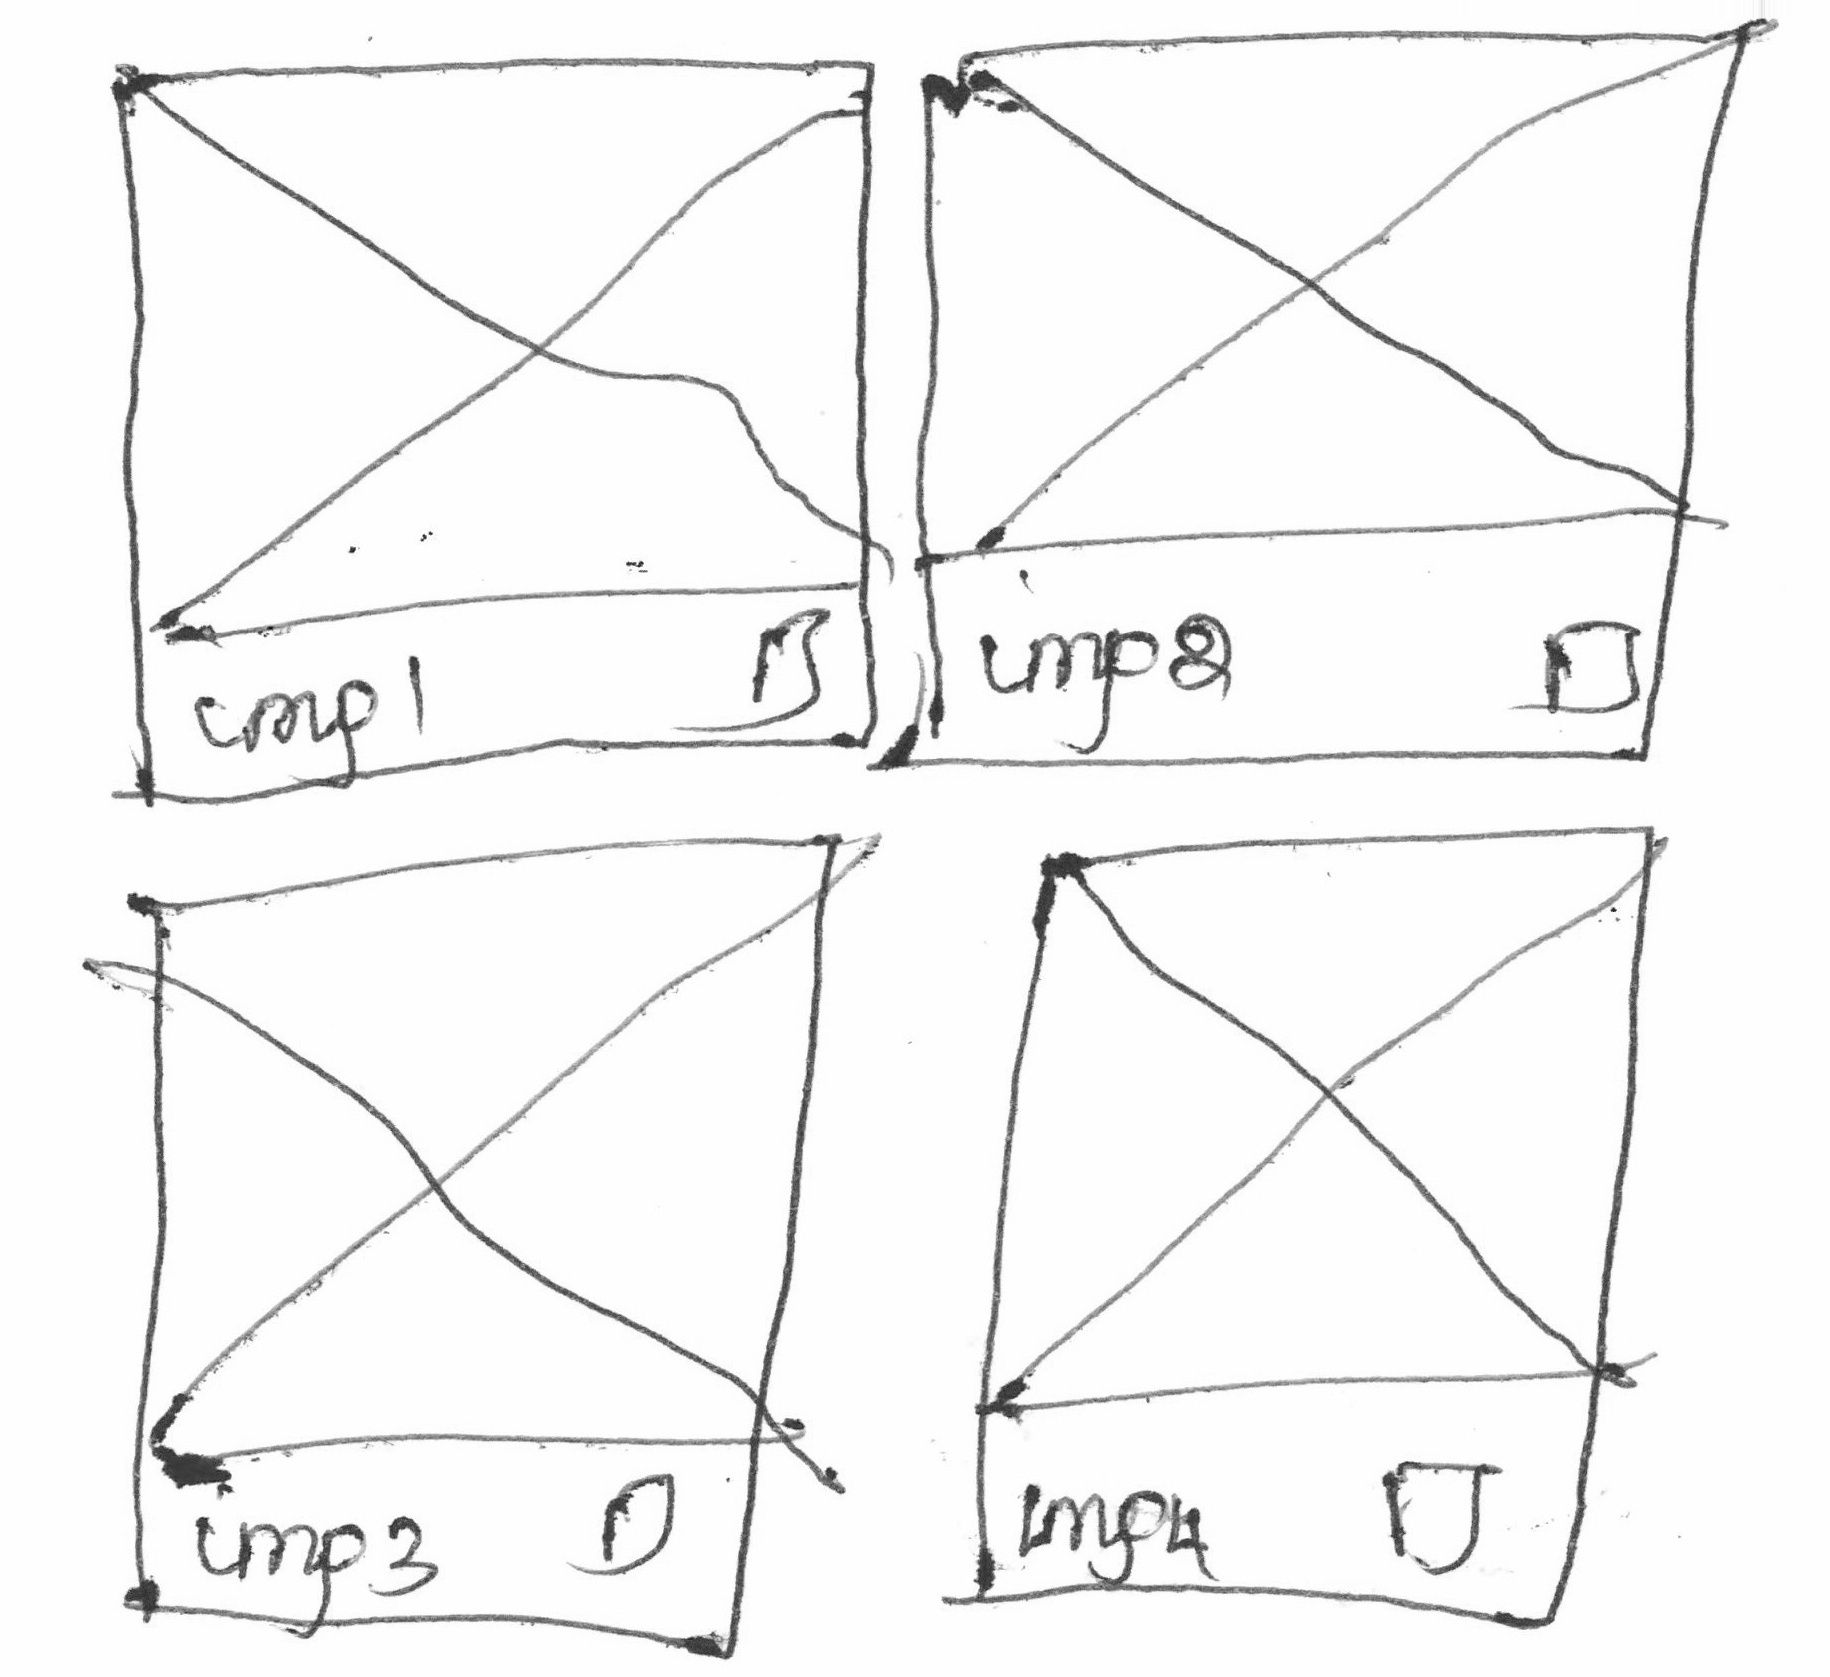 imp1
imp2
imp3
imp4